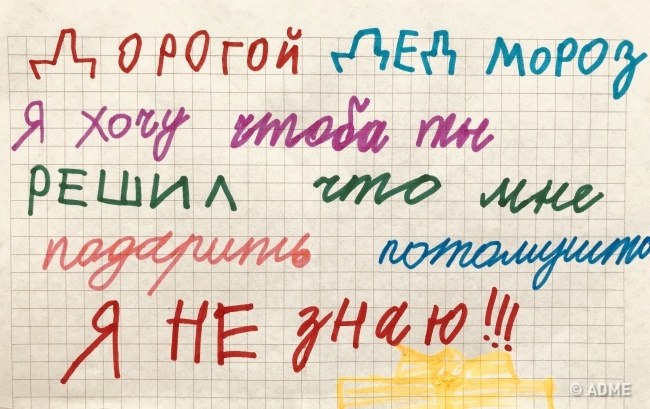 ДОРОГОЙ ДЕД МОРОЗ
Я хочу чтоба ты
РЕШИЛ что мне
падарить потомушто
Я НЕ знаю!!!
© ADME